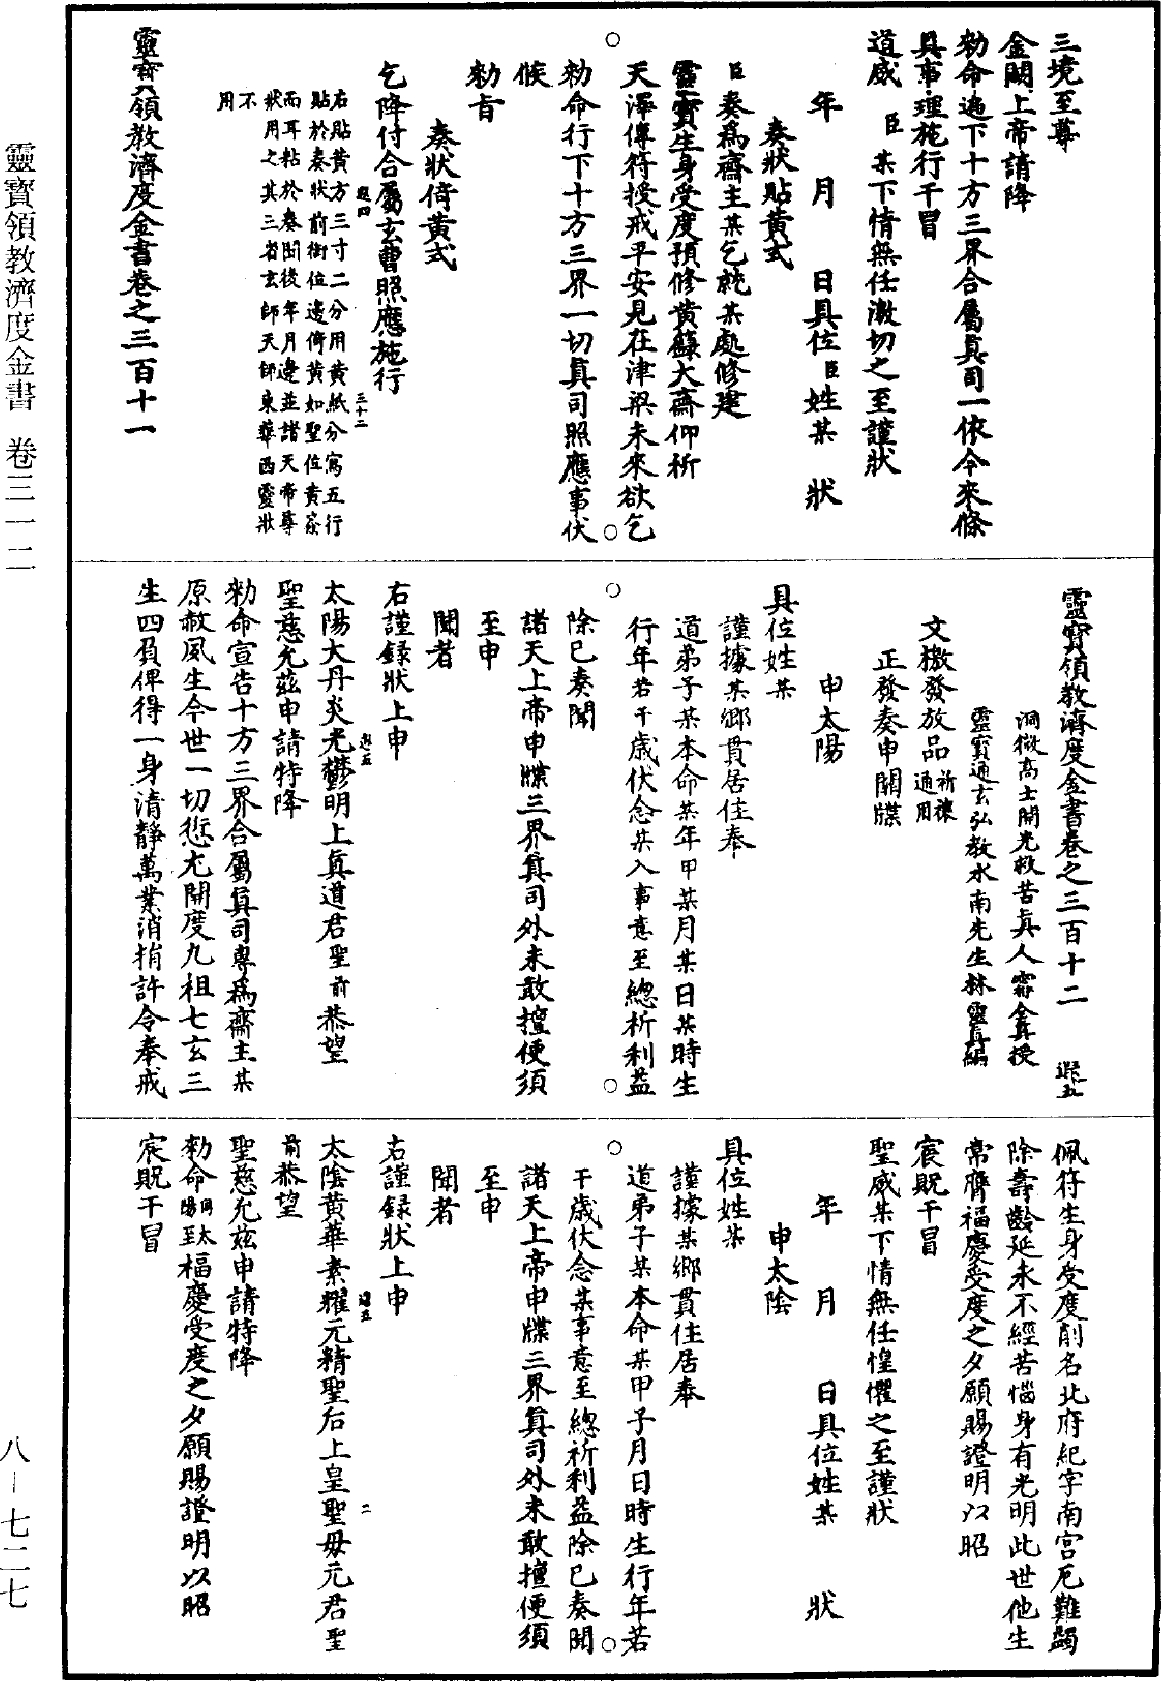 三境至尊
金闕上帝請降
勑命遍下十方三界合屬真司一依今來條
具事理施行干冒
道威　臣某下情無任激切之至謹狀
年　月　日具位臣姓某　狀
奏狀貼黄式
臣奏爲齋主某乞就某處修建
靈寶生身受度預修黄籙大齋仰祈
天澤傳符授戒平安見在津梁未來欲乞
勑命行下十方三界一切真司照應事伏
候
勑旨
奏狀倚黄式
乞降付合屬玄曹照應施行
右貼黄方三寸二分用黄紙分寫五行
貼於奏狀前銜位邊倚黄如聖位黄籤
而耳粘於奏聞後年月邊並諸天帝尊
狀用之其三省玄師天師東華西靈狀
不
用
靈寶領教濟度金書卷之三百十一
靈寶領教濟度金書卷之三百十二　退五
洞微高士開光救苦真人甯全真授
靈寶通玄弘教水南先生林靈真編
文檄發放品祈禳通用
正發奏申關牒
申太陽
具位姓某
謹據某鄉貫居住奉
道弟子某本命某年甲某月某日某時生
行年若干歲伏念某入事意至總祈利益
除已奏聞
諸天上帝申牒三界真司外未敢擅便須
至申
聞者
右謹錄狀上申
太陽大丹炎光鬱明上真道君聖前恭望
聖慈允兹申請特降
勑命宣告十方三界合屬真司專爲齋主某
原赦夙生今世一切愆尤開度九祖七玄三
生四負俾得一身清靜萬業消捐許令奉戒
佩符生身受度削名北府紀字南宫厄難蠲
除壽齡延永不經苦惱身有光明此世他生
常膺福慶受度之夕願賜證明以昭
宸貺干冒
聖威某下情無任惶懼之至謹狀
年　月　日具位姓某　狀
申太陰
具位姓某
謹據某鄉貫住居奉
道弟子某本命某甲子月日時生行年若
干歲伏念某事意至總祈利益除已奏聞
諸天上帝申牒三界真司外未敢擅便須
至申
聞者
右謹錄狀上申
太陰黄華素耀元精聖后上皇聖母元君聖
前恭望
聖慈允兹申請特降
勑命同太陽至福慶受度之夕願賜證明以昭
宸貺干冒
靈寶領教濟度金書　卷三一二
八—七二七